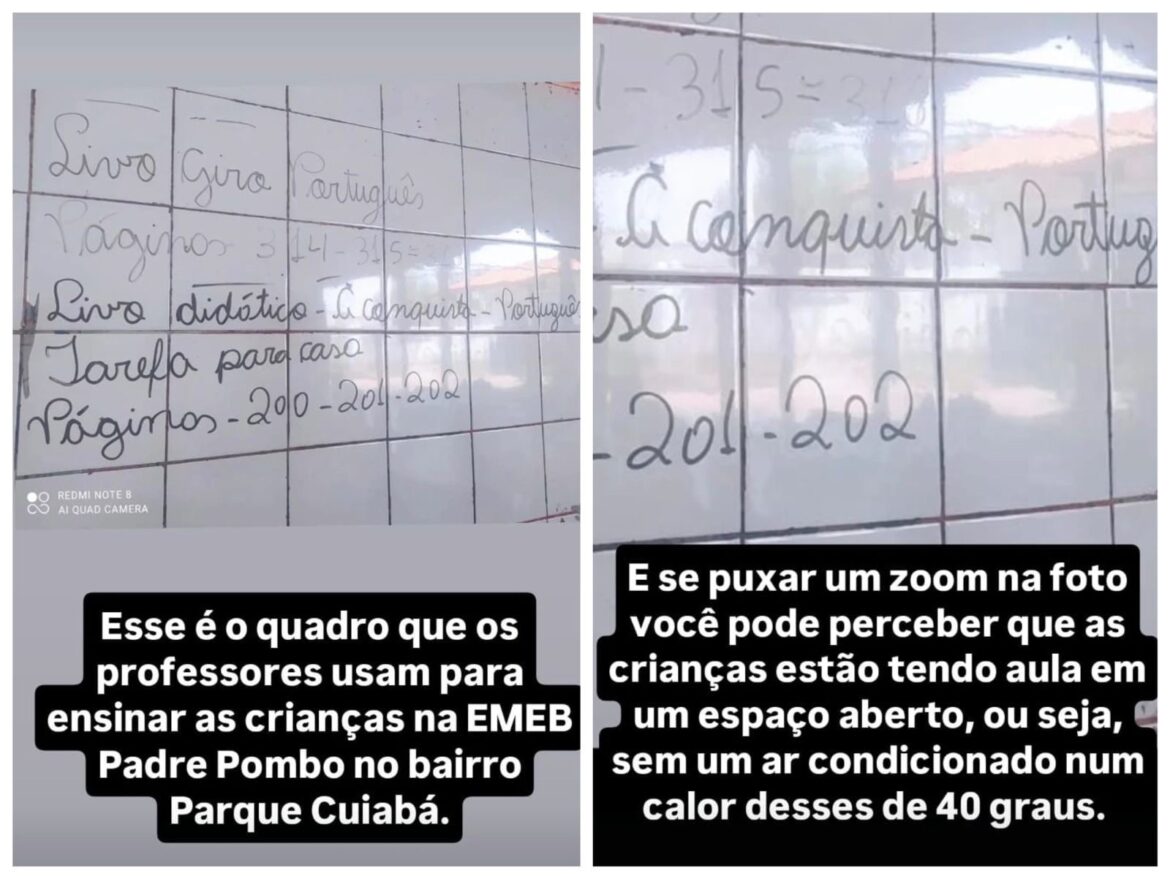 Livro Giro Português
Páginas 314-315=
Livro didático - A conquista - Português
Tarefa para casa
Páginas - 200 - 201 - 202
REDMI NOTE 8
AI QUAD CAMERA
Esse é o quadro que os
professores usam para
ensinar as crianças na EMEB
Padre Pombo no bairro
Parque Cuiabá.
1 - 315 =
- A conquista - Portug
asa
- 201 - 202
E se puxar um zoom na foto
você pode perceber que as
crianças estão tendo aula em
um espaço aberto, ou seja,
sem um ar condicionado num
calor desses de 40 graus.